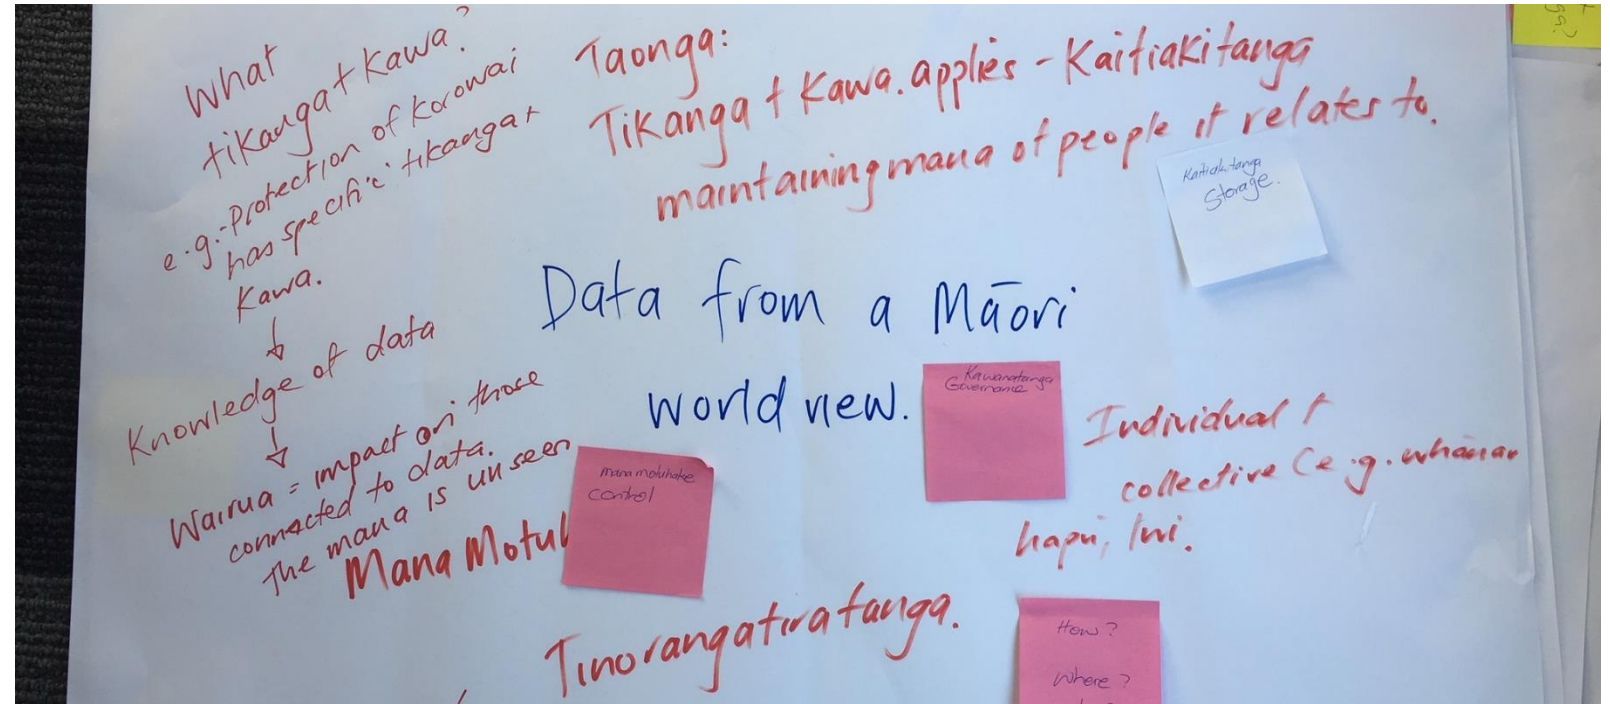 What
tikanga + Kawa?
e.g. - Protection of Korowai
has specific tikanga +
Kawa.
↓
Knowledge of data
↓
Wairua = impact on those
connected to data.
The mana is unseen
Mana Motuh
Taonga:
Tikanga + Kawa. applies - Kaitiakitanga
maintaining mana of people it relates to.
Kaitiakitanga
Storage.
Data from a Māori
world view.
Kawanatanga
Governance
mana motuhake
control
Individual +
collective (e.g. whānau
hapū, Iwi.
Tinorangatiratanga.
How?
Where?